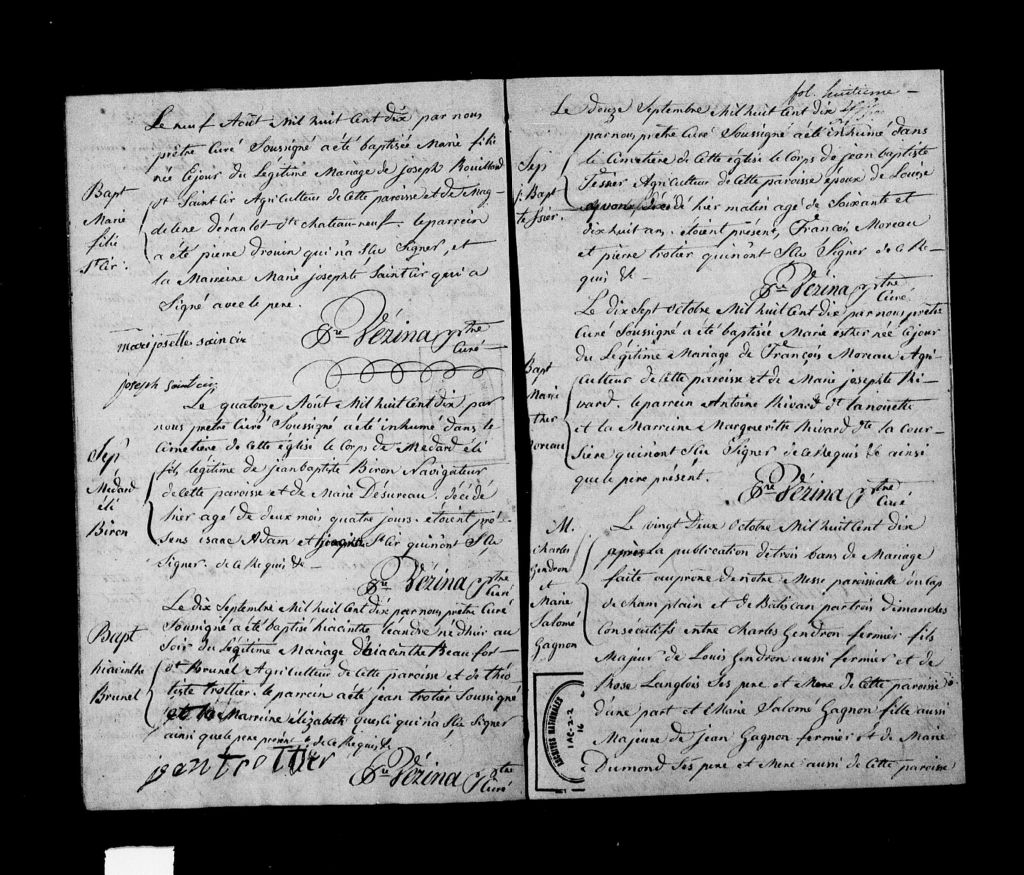 Le neuf Août Mil huit Cent dix par nous
prêtre Curé Soussigné a été baptisée Marie filie
née Cejour du Légitime Mariage de joseph Rouillard
dt Saint Cir Agriculteur de Cette paroisse et de Mag-
delene dérantot dte chateauneuf. le parrein
a été pierre drouin qui n'a Sçu Signer, et
la Marreine Marie josephte Saint Cir qui a
Signé avec le pere.
Bapt
Marie
filie
St Cir.
Pre Vézina ptre
Curé
mari joselle sain cir
joseph saint cir
Le quatorze Aout Mil huit Cent dix par
nous prêtre Curé Soussigné a été inhumé dans le
Cimetière de Cette église le Corps de Medard éli
fils légitime de jean baptiste Biron Navigateur
de Cette paroisse et de Marie Désureau. décédé
hier agé de deux mois quatre jours. etoient pré-
sens isaac Adam et St Cir qui n'ont Sçu
Signer. de Ce Requis &-
Sep
Médard
éli
Biron
Pre Vézina ptre
Curé
Le dix Septembre Mil huit Cent dix par nous prêtre Curé
Soussigné a été baptisé hiacinthe léandre né d'hier au
Soir du Légitime Mariage d'hiacinthe Beaufor
dt Brunel Agriculteur de Cette paroisse et de Théo
tiste trottier. le parrein a été jean trotier Soussigné
et la Marreine élizabeth quesli qui n'a Sçu Signer
ainsi que le pere présent de Ce Requis &
Bapt
hiacinthe
Brunel
jean trottier
Pre Vézina ptre
Curé
fol. huitieme
Le douze Septembre Mil huit Cent dix
par nous prêtre Curé Soussigné a été inhumé dans
le Cimetière de Cette église le Corps de jean baptiste
Tessier Agriculteur de Cette paroisse époux de Louise
hier matin agé de Soixante et
dix huit ans. etoient présens François Moreau
et pierre trotier qui n'ont Sçu Signer de Ce Re-
quis &-
Sep
j. Bapt
tessier.
Pre Vézina ptre
Curé
Le dix Sept Octobre Mil huit Cent dix par nous prêtre
Curé Soussigné a été baptisée Marie esther née Cejour
du Légitime Mariage de François Moreau Agri-
culteur de Cette paroisse et de Marie josephte Ri-
vard. le parrein Antoine Rivard dt lanouette
et la Marreine Marguerite Rivard dte la Cour-
sière qui n'ont Sçu Signer de Ce Requis & ainsi
que le pere présent.
Bapt
Marie
ther
Moreau
Pre Vézina ptre
Curé
Le vingt Deux Octobre Mil huit Cent dix
après la publication de trois bans de Mariage
faite au prone de notre Messe paroissialle du Cap
de Champlain et de Batiscan par trois dimanches
Consécutifs entre Charles Gendron fermier fils
Majeur de Louis Gendron aussi fermier et de
Rose Langlois Ses pere et Mere de Cette paroisse
d'une part et Marie Salomé Gagnon fille aussi
Majeure de jean Gagnon fermier et de Marie
Dumond Ses pere et Mere aussi de Cette paroisse
M.
Charles
Gendron
et
Marie
Salomé
Gagnon
ARCHIVES NATIONALES
1 AC-2-2
16